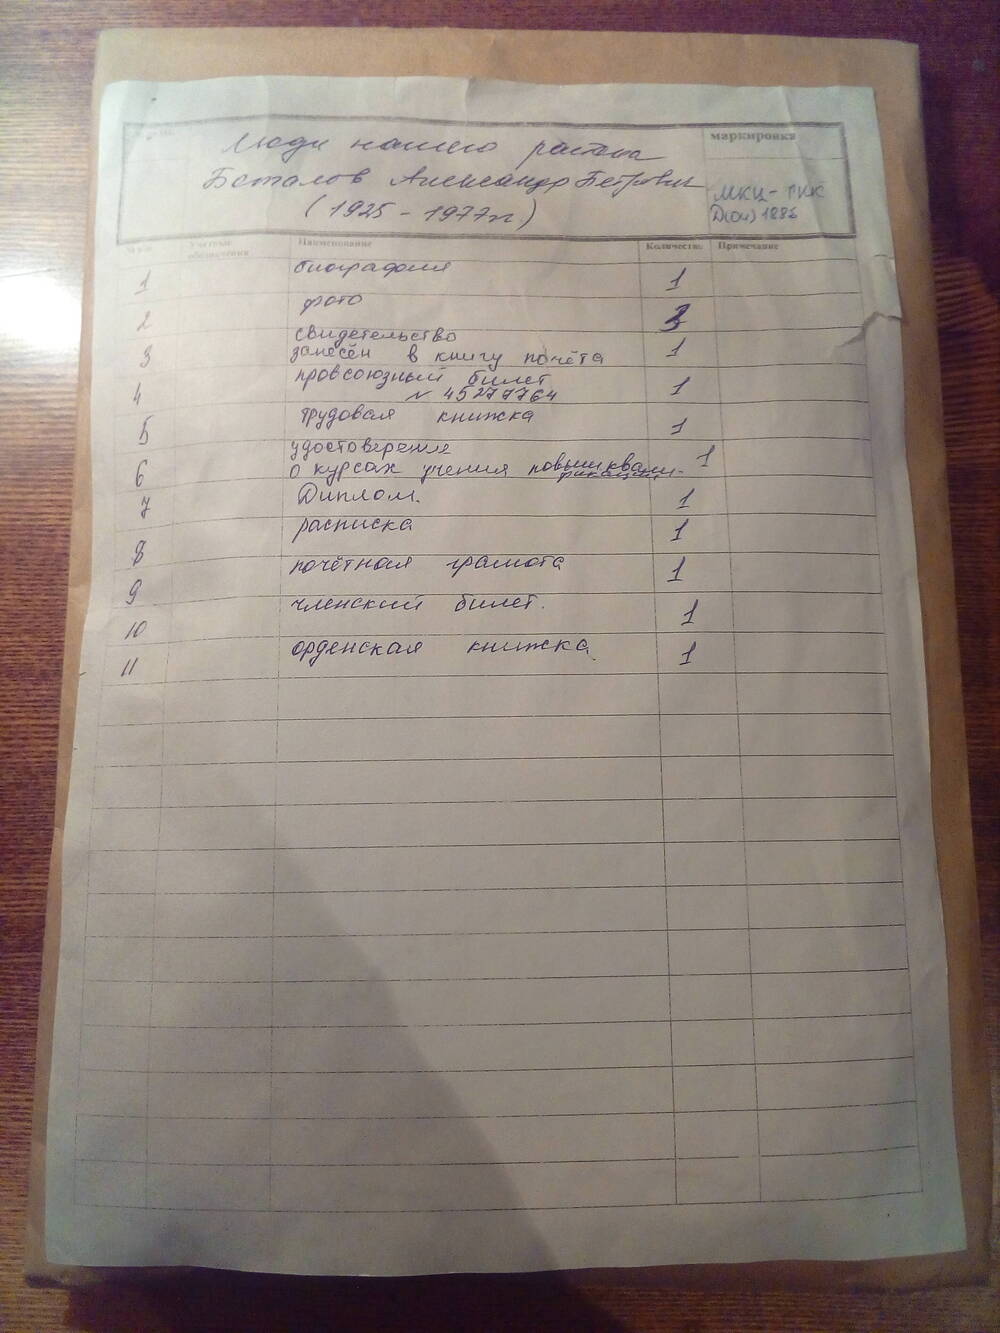 Люди нашего района
маркировка
Баталов Александр Петрович
(1925 - 1977гг.)
МКЦ-ГИК
D(ОИ) 1886
Учетные обозначения Наименование Количеств. Примечание
1 биография 1
2 фото 3
3 свидетельство
занесён в книгу почёта 1
4 провсоюзный билет
№ 45277764 1
5 трудовая книжка 1
6 удостоверение
о курсах учения повыш квали-
фикации 1
7 Диплом. 1
8 расписка 1
9 почётная грамота 1
10 членский билет. 1
11 орденская книжка 1